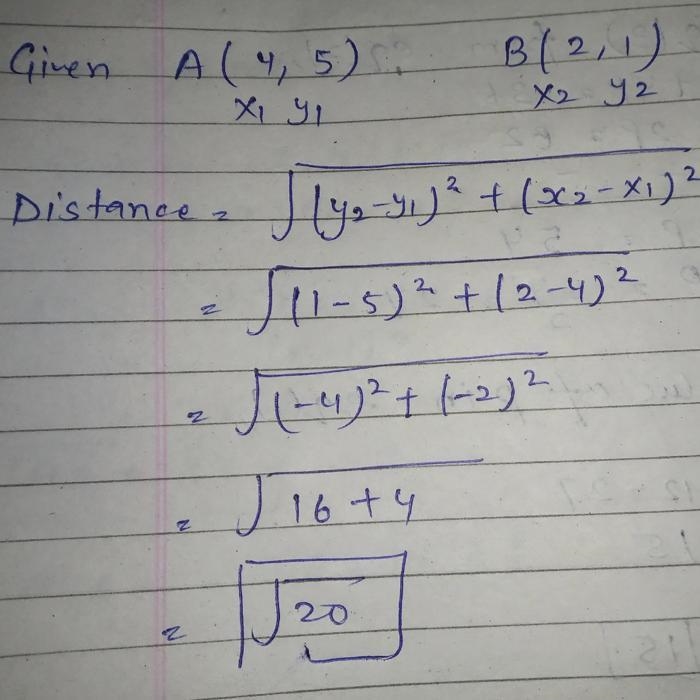 Given A(4,5). B(2,1)
x1 y1 x2 y2
Distance = √(y2-y1)² + (x2-x1)²
= √(1-5)² + (2-4)²
= √(-4)² + (-2)²
= √16+4
= √20